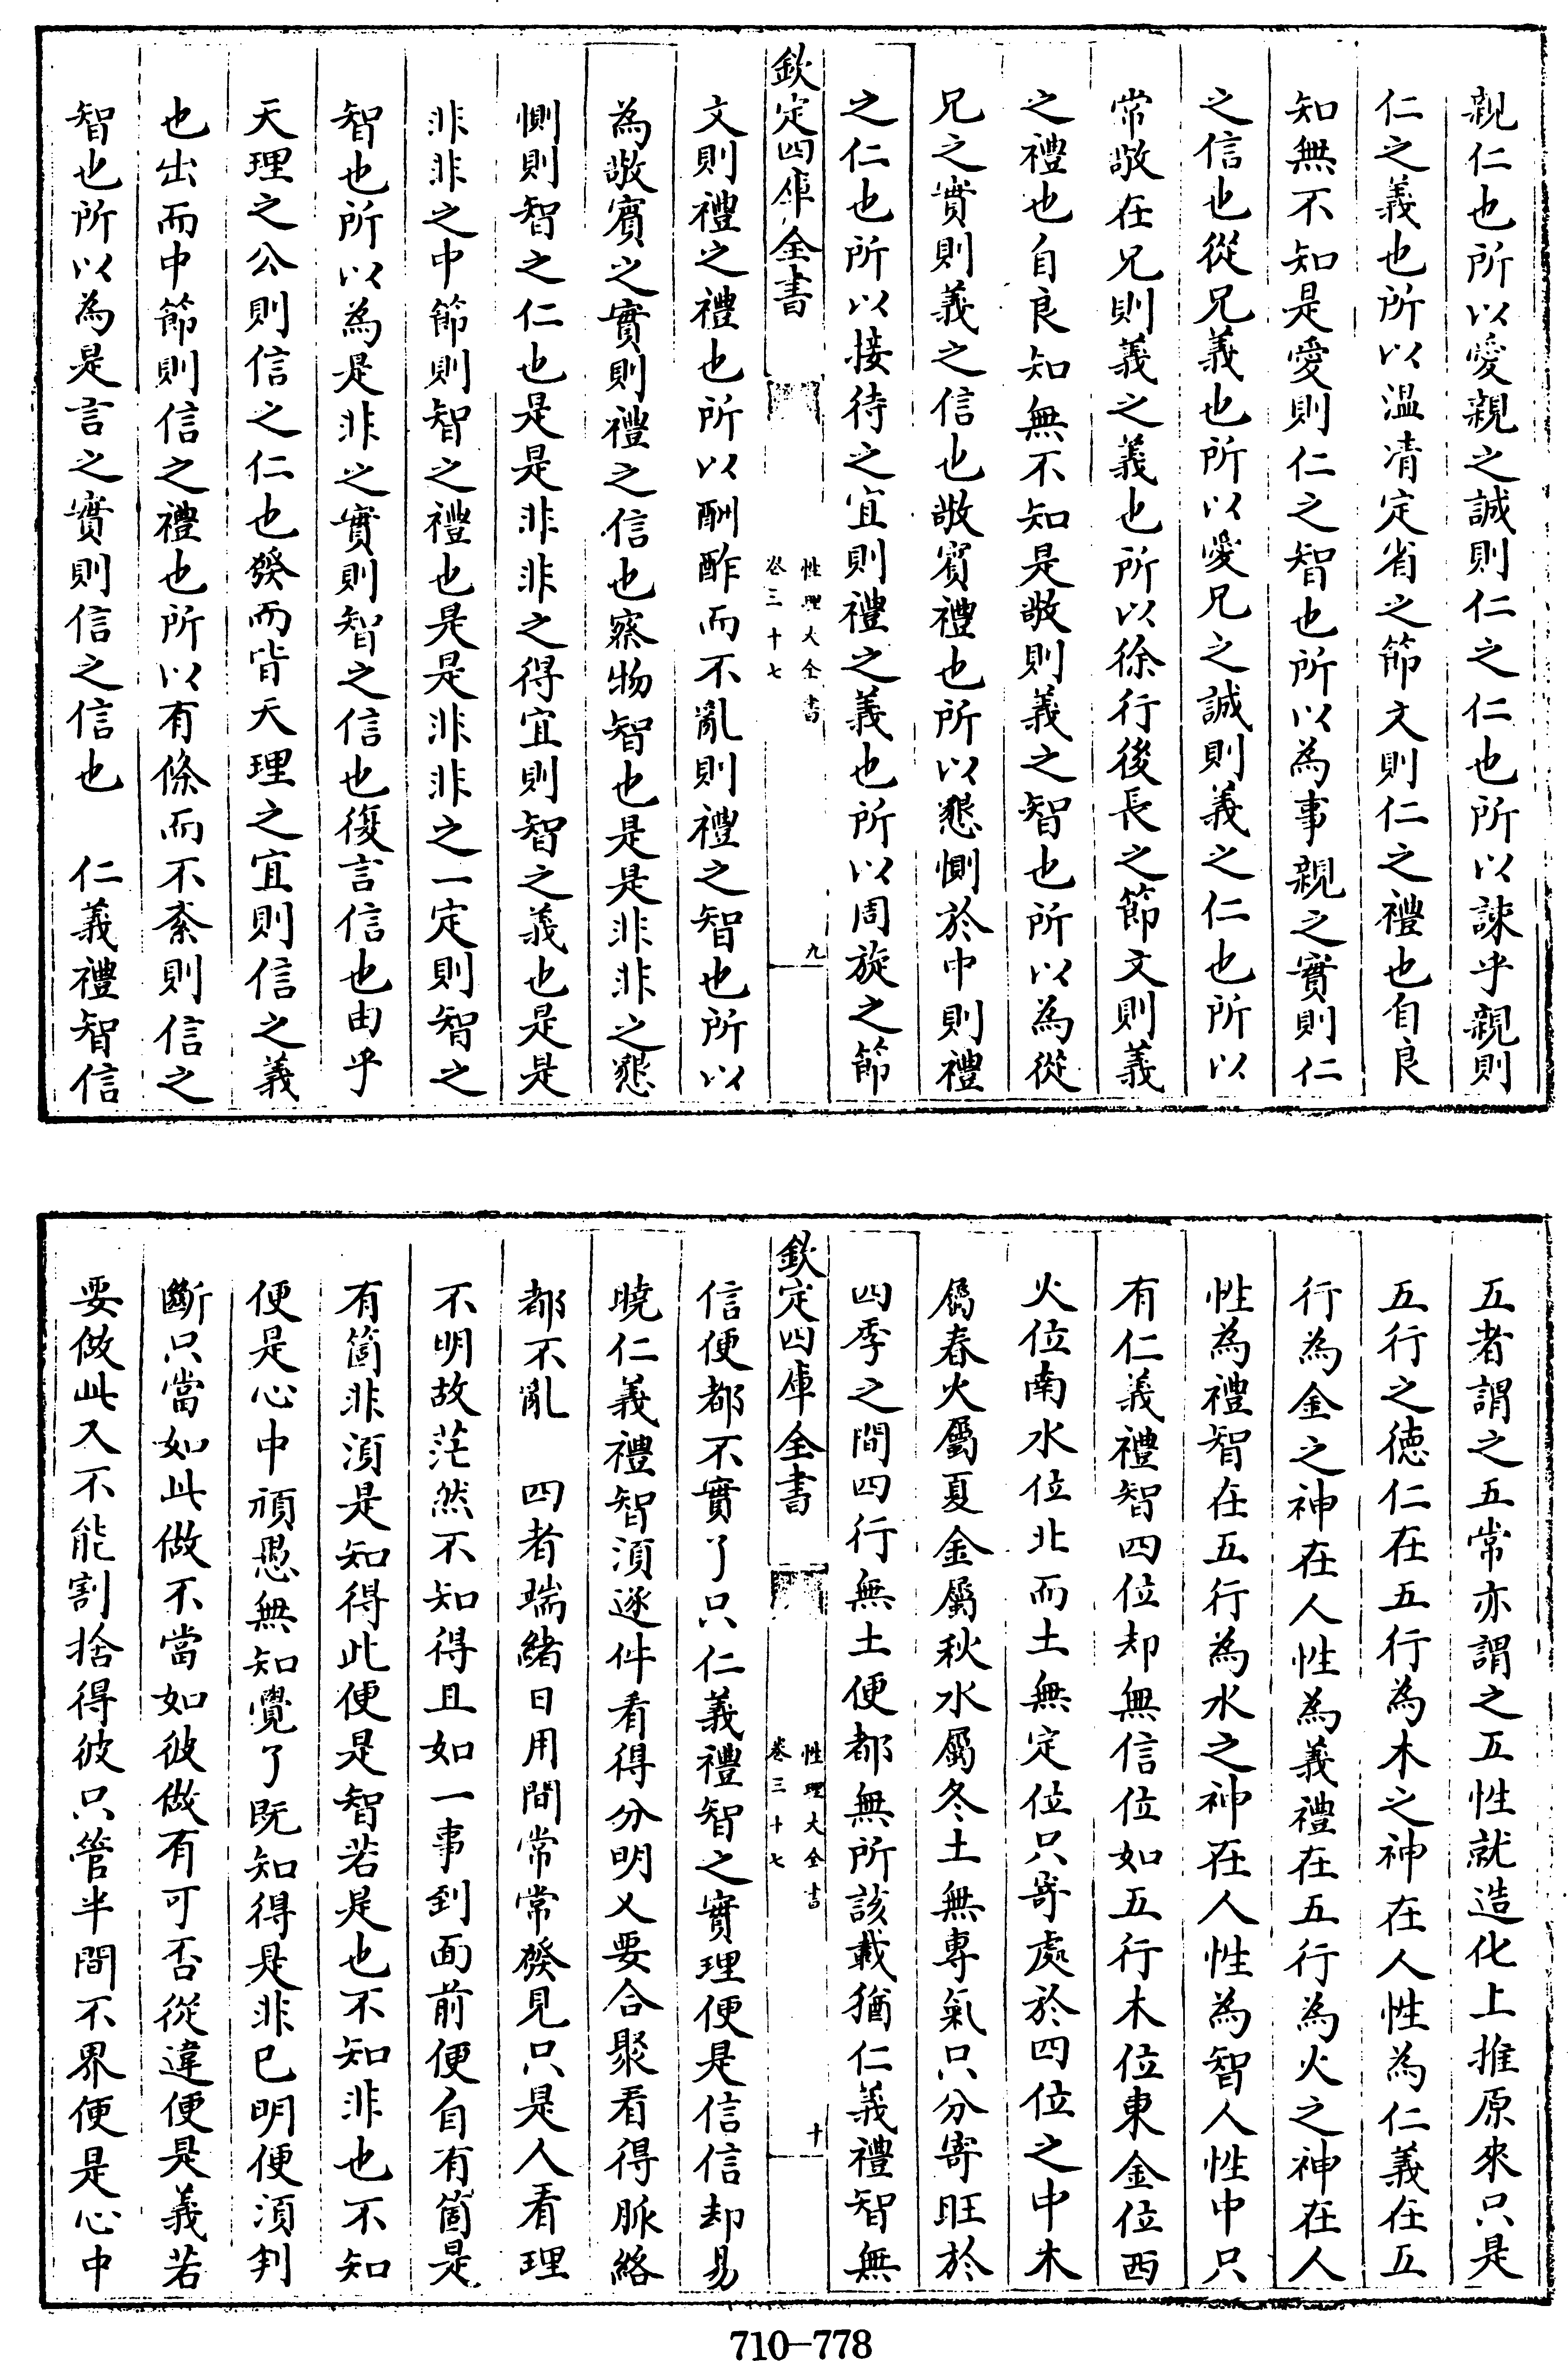 親仁也所以愛親之誠則仁之仁也所以諫乎親則
仁之義也所以温凊定省之節文則仁之禮也自良
知無不知是愛則仁之智也所以為事親之實則仁
之信也從兄義也所以愛兄之誠則義之仁也所以
常敬在兄則義之義也所以徐行後長之節文則義
之禮也自良知無不知是敬則義之智也所以為從
兄之實則義之信也敬賔禮也所以懇惻於中則禮
之仁也所以接待之宜則禮之義也所以周旋之節
欽定四庫全書
性理大全書
卷三十七
九
文則禮之禮也所以酬酢而不亂則禮之智也所以
為敬賔之實則禮之信也察物智也是是非非之懇
惻則智之仁也是是非非之得宜則智之義也是是
非非之中節則智之禮也是是非非之一定則智之
智也所以為是非之實則智之信也復言信也由乎
天理之公則信之仁也發而皆天理之宜則信之義
也出而中節則信之禮也所以有條而不紊則信之
智也所以為是言之實則信之信也　仁義禮智信
五者謂之五常亦謂之五性就造化上推原來只是
五行之徳仁在五行為木之神在人性為仁義在五
行為金之神在人性為義禮在五行為火之神在人
性為禮智在五行為水之神在人性為智人性中只
有仁義禮智四位却無信位如五行木位東金位西
火位南水位北而土無定位只寄處於四位之中木
屬春火屬夏金屬秋水屬冬土無專氣只分寄旺於
四季之間四行無土便都無所該載猶仁義禮智無
欽定四庫全書
性理大全書
卷三十七
十
信便都不實了只仁義禮智之實理便是信信却易
曉仁義禮智須逐件看得分明又要合聚看得脈絡
都不亂　四者端緒日用間常常發見只是人看理
不明故茫然不知得且如一事到面前便自有箇是
有箇非須是知得此便是智若是也不知非也不知
便是心中頑愚無知覺了既知得是非已明便須判
斷只當如此做不當如彼做有可否從違便是義若
要做此又不能割捨得彼只管半間不界便是心中
710-778